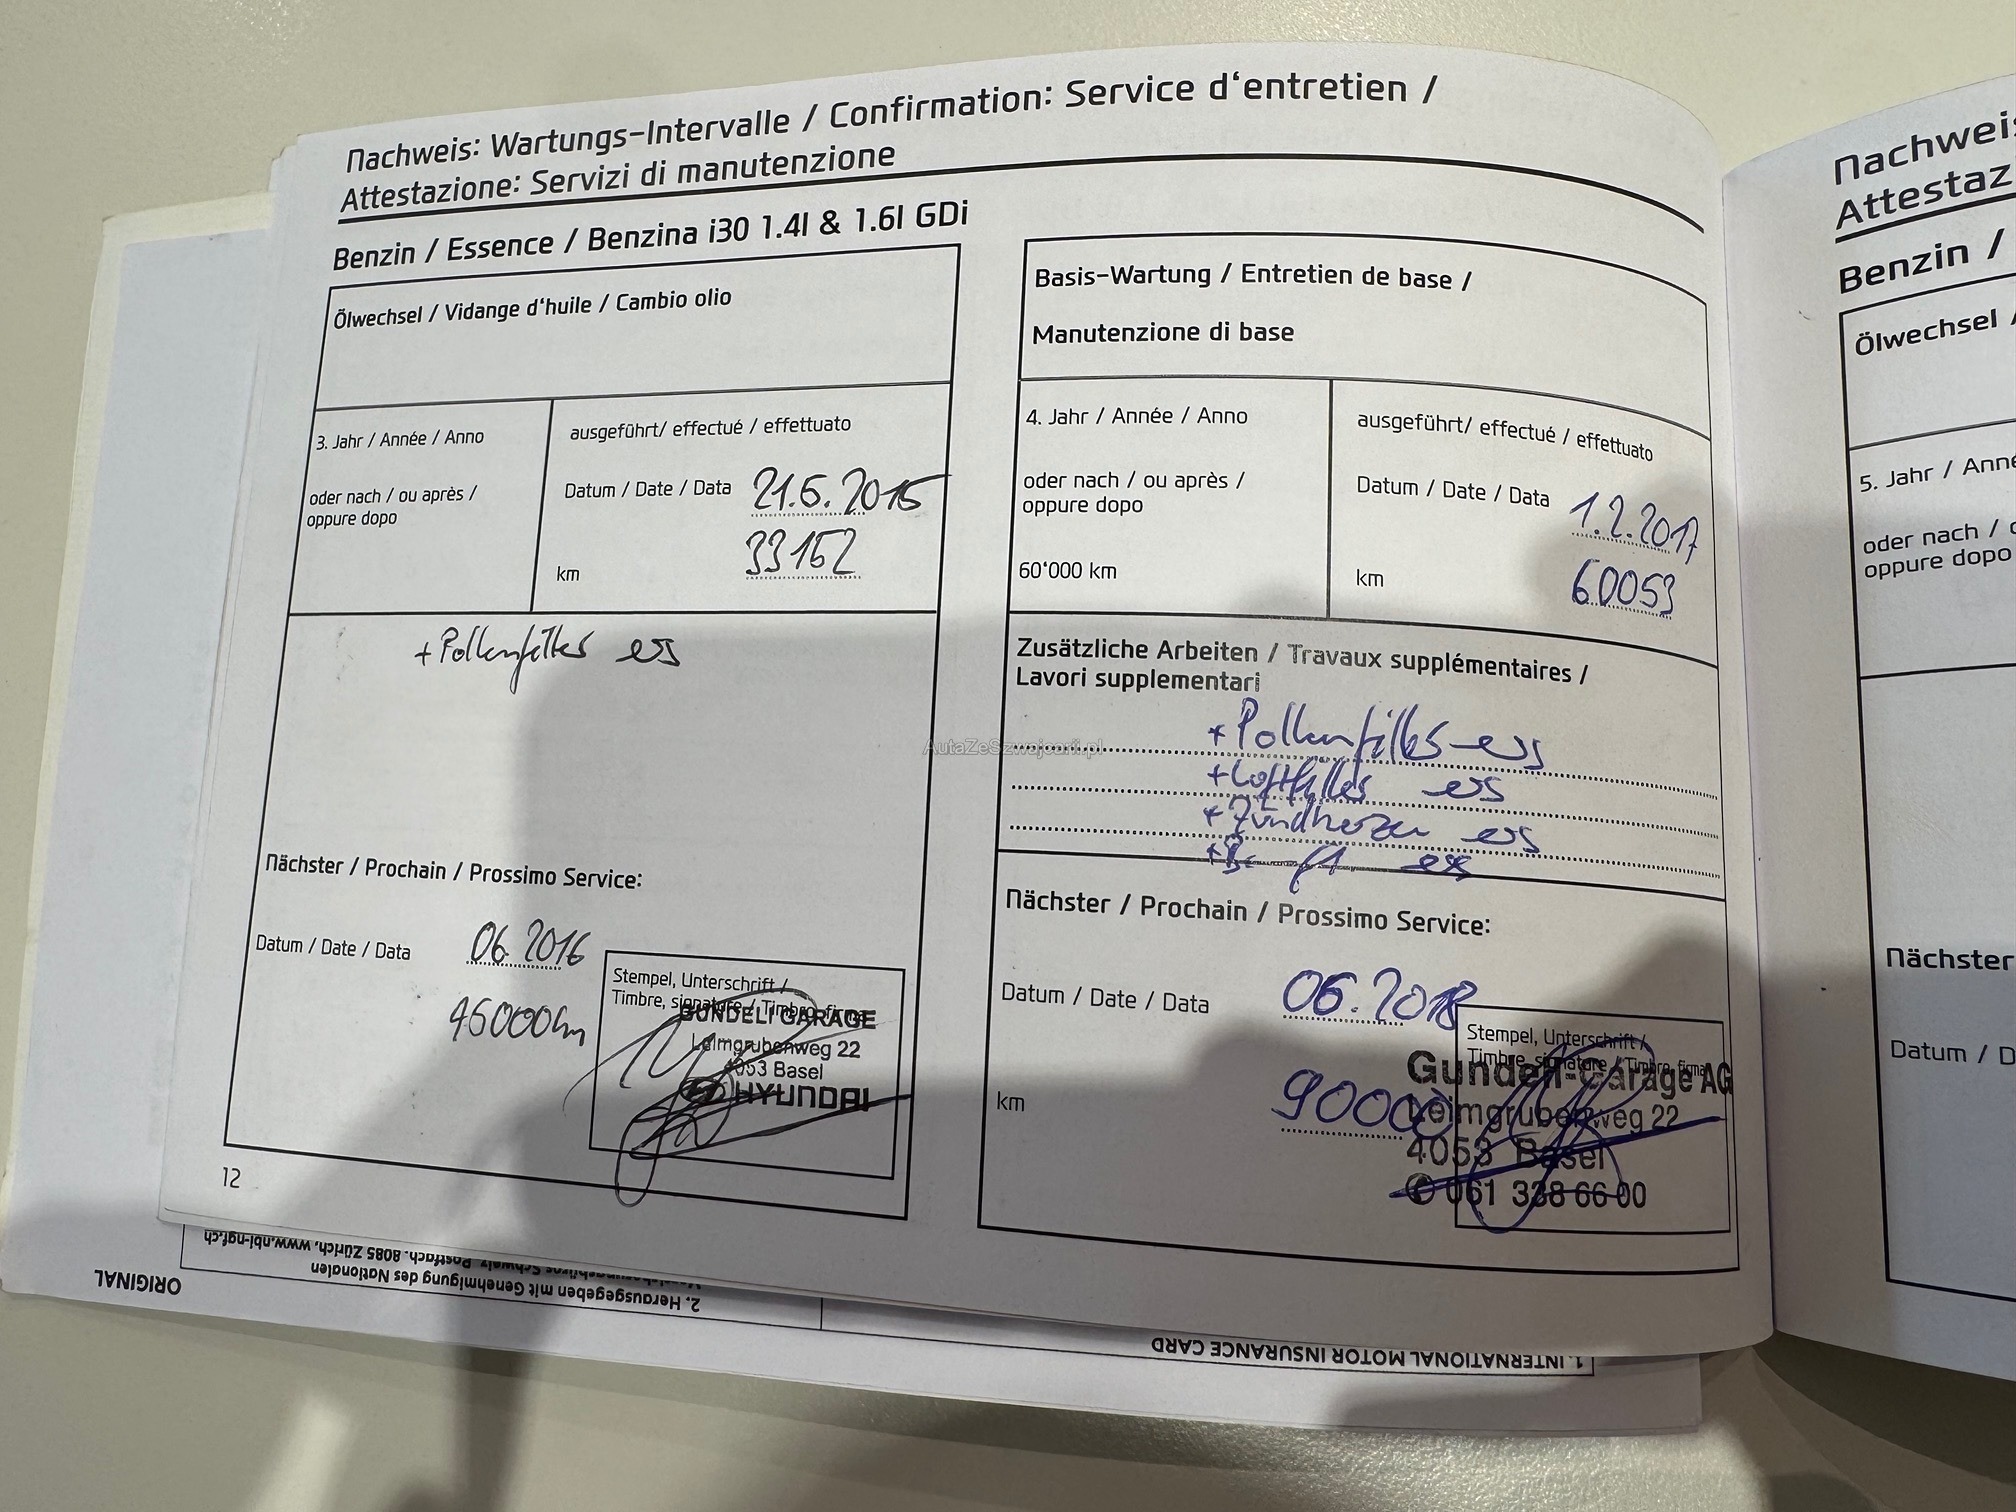 Nachweis: Wartungs-Intervalle / Confirmation: Service d'entretien /
Attestazione: Servizi di manutenzione
Benzin / Essence / Benzina i30 1.4l & 1.6l GDi
Ölwechsel / Vidange d'huile / Cambio olio
3. Jahr / Année / Anno
oder nach / ou après /
oppure dopo
ausgeführt/ effectué / effettuato
Datum / Date / Data 21.5.2015
km 33152
+ Pollenfilter ers
Nächster / Prochain / Prossimo Service:
Datum / Date / Data 06.2016
45000km
Stempel, Unterschrift /
Timbre, signature / Timbro, firma
GUNDELI GARAGE
Leimgrubenweg 22
4053 Basel
HYUNDAI
12
Basis-Wartung / Entretien de base /
Manutenzione di base
4. Jahr / Année / Anno
oder nach / ou après /
oppure dopo
60'000 km
ausgeführt/ effectué / effettuato
Datum / Date / Data 1.2.2017
km 60053
Zusätzliche Arbeiten / Travaux supplémentaires /
Lavori supplementari
+ Pollenfilter ers
+ Luftfilter ers
+ Zündkerzen ers
Nächster / Prochain / Prossimo Service:
Datum / Date / Data 06.2018
km 90000
Stempel, Unterschrift /
Timbre, signature / Timbro, firma
Gundeli-Garage AG
Leimgrubenweg 22
4053 Basel
061 338 66 00
AutaZeSzwajcarii.pl
Nachweis
Attestaz
Benzin /
Ölwechsel /
5. Jahr / Anné
oder nach /
oppure dopo
Nächster
Datum / D
ORIGINAL
2. Herausgegeben mit Genehmigung des Nationalen
Versicherungsbüros Schweiz, Postfach, 8085 Zürich, www.nbi-ngf.ch
1. INTERNATIONAL MOTOR INSURANCE CARD